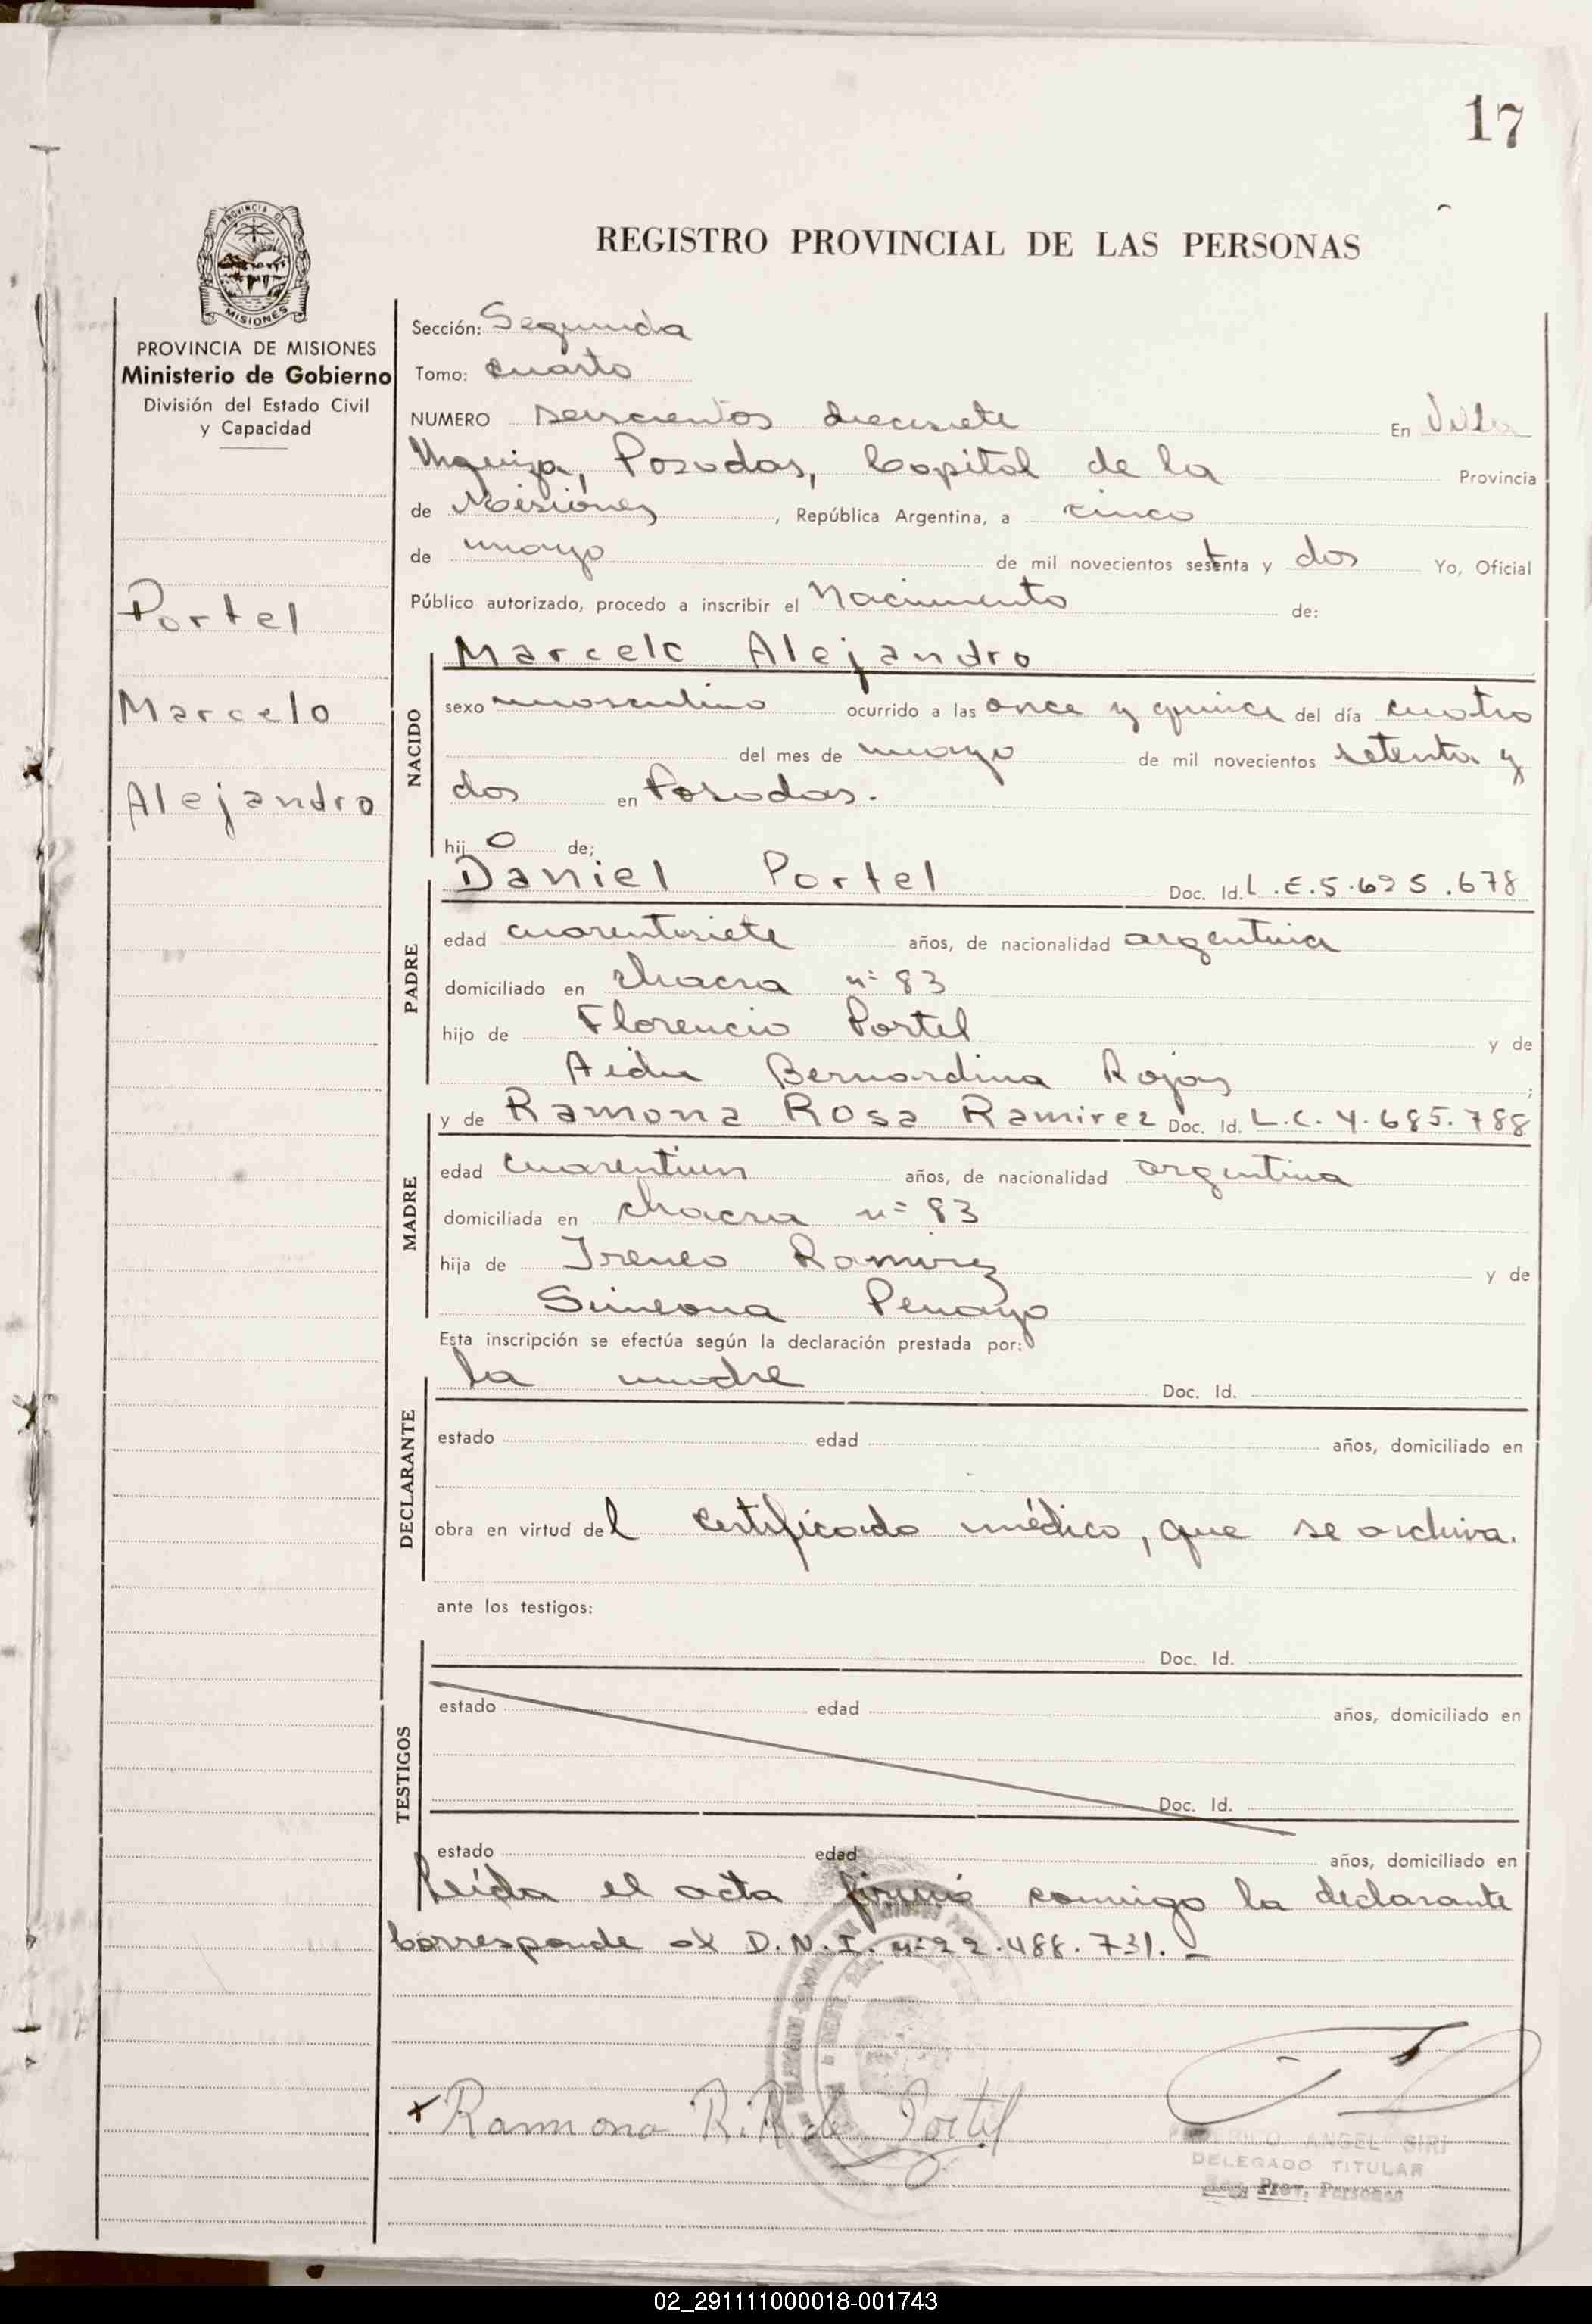 17
PROVINCIA DE
MISIONES
REGISTRO PROVINCIAL DE LAS PERSONAS
PROVINCIA DE MISIONES
Ministerio de Gobierno
División del Estado Civil
y Capacidad
Portel
Marcelo
Alejandro
Sección: Segunda
Tomo: cuarto
NUMERO seiscientos diecisiete En Villa
Urquiza, Posadas, Capital de la Provincia
de Misiones, República Argentina, a cinco
de mayo de mil novecientos setenta y dos Yo, Oficial
Público autorizado, procedo a inscribir el Nacimiento de:
NACIDO
Marcelo Alejandro
sexo masculino ocurrido a las once y quince del día cuatro
del mes de mayo de mil novecientos setenta y
dos en Posadas.
hijo de;
PADRE
Daniel Portel Doc. Id. L.E.5.695.678
edad cuarentisiete años, de nacionalidad argentina
domiciliado en chacra nº 83
hijo de Florencio Portel y de
Aida Bernardina Rojas ;
MADRE
y de Ramona Rosa Ramirez Doc. Id. L.C. 4.685.788
edad cuarentiun años, de nacionalidad argentina
domiciliada en chacra nº 83
hija de Ireneo Ramirez y de
Simeona Penayo
Esta inscripción se efectúa según la declaración prestada por:
DECLARANTE
la madre Doc. Id.
estado edad años, domiciliado en
obra en virtud del certificado médico, que se archiva.
ante los testigos:
TESTIGOS
Doc. Id.
estado edad años, domiciliado en
Doc. Id.
estado edad años, domiciliado en
Leída el acta firmó conmigo la declarante
Corresponde al D.N.I. nº 22.488.731.-
Ramona R.R. de Portel
ANGEL SIRI
DELEGADO TITULAR
Prov. Personas
02_291111000018-001743